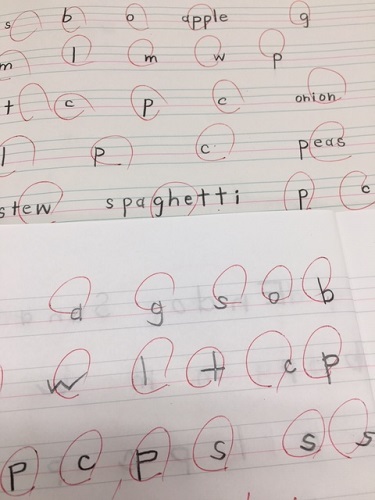 s b o apple g
m l m w p
t c p c onion
l p c peas
stew spaghetti p c
a g s o b
w l t c p
p c p s s s